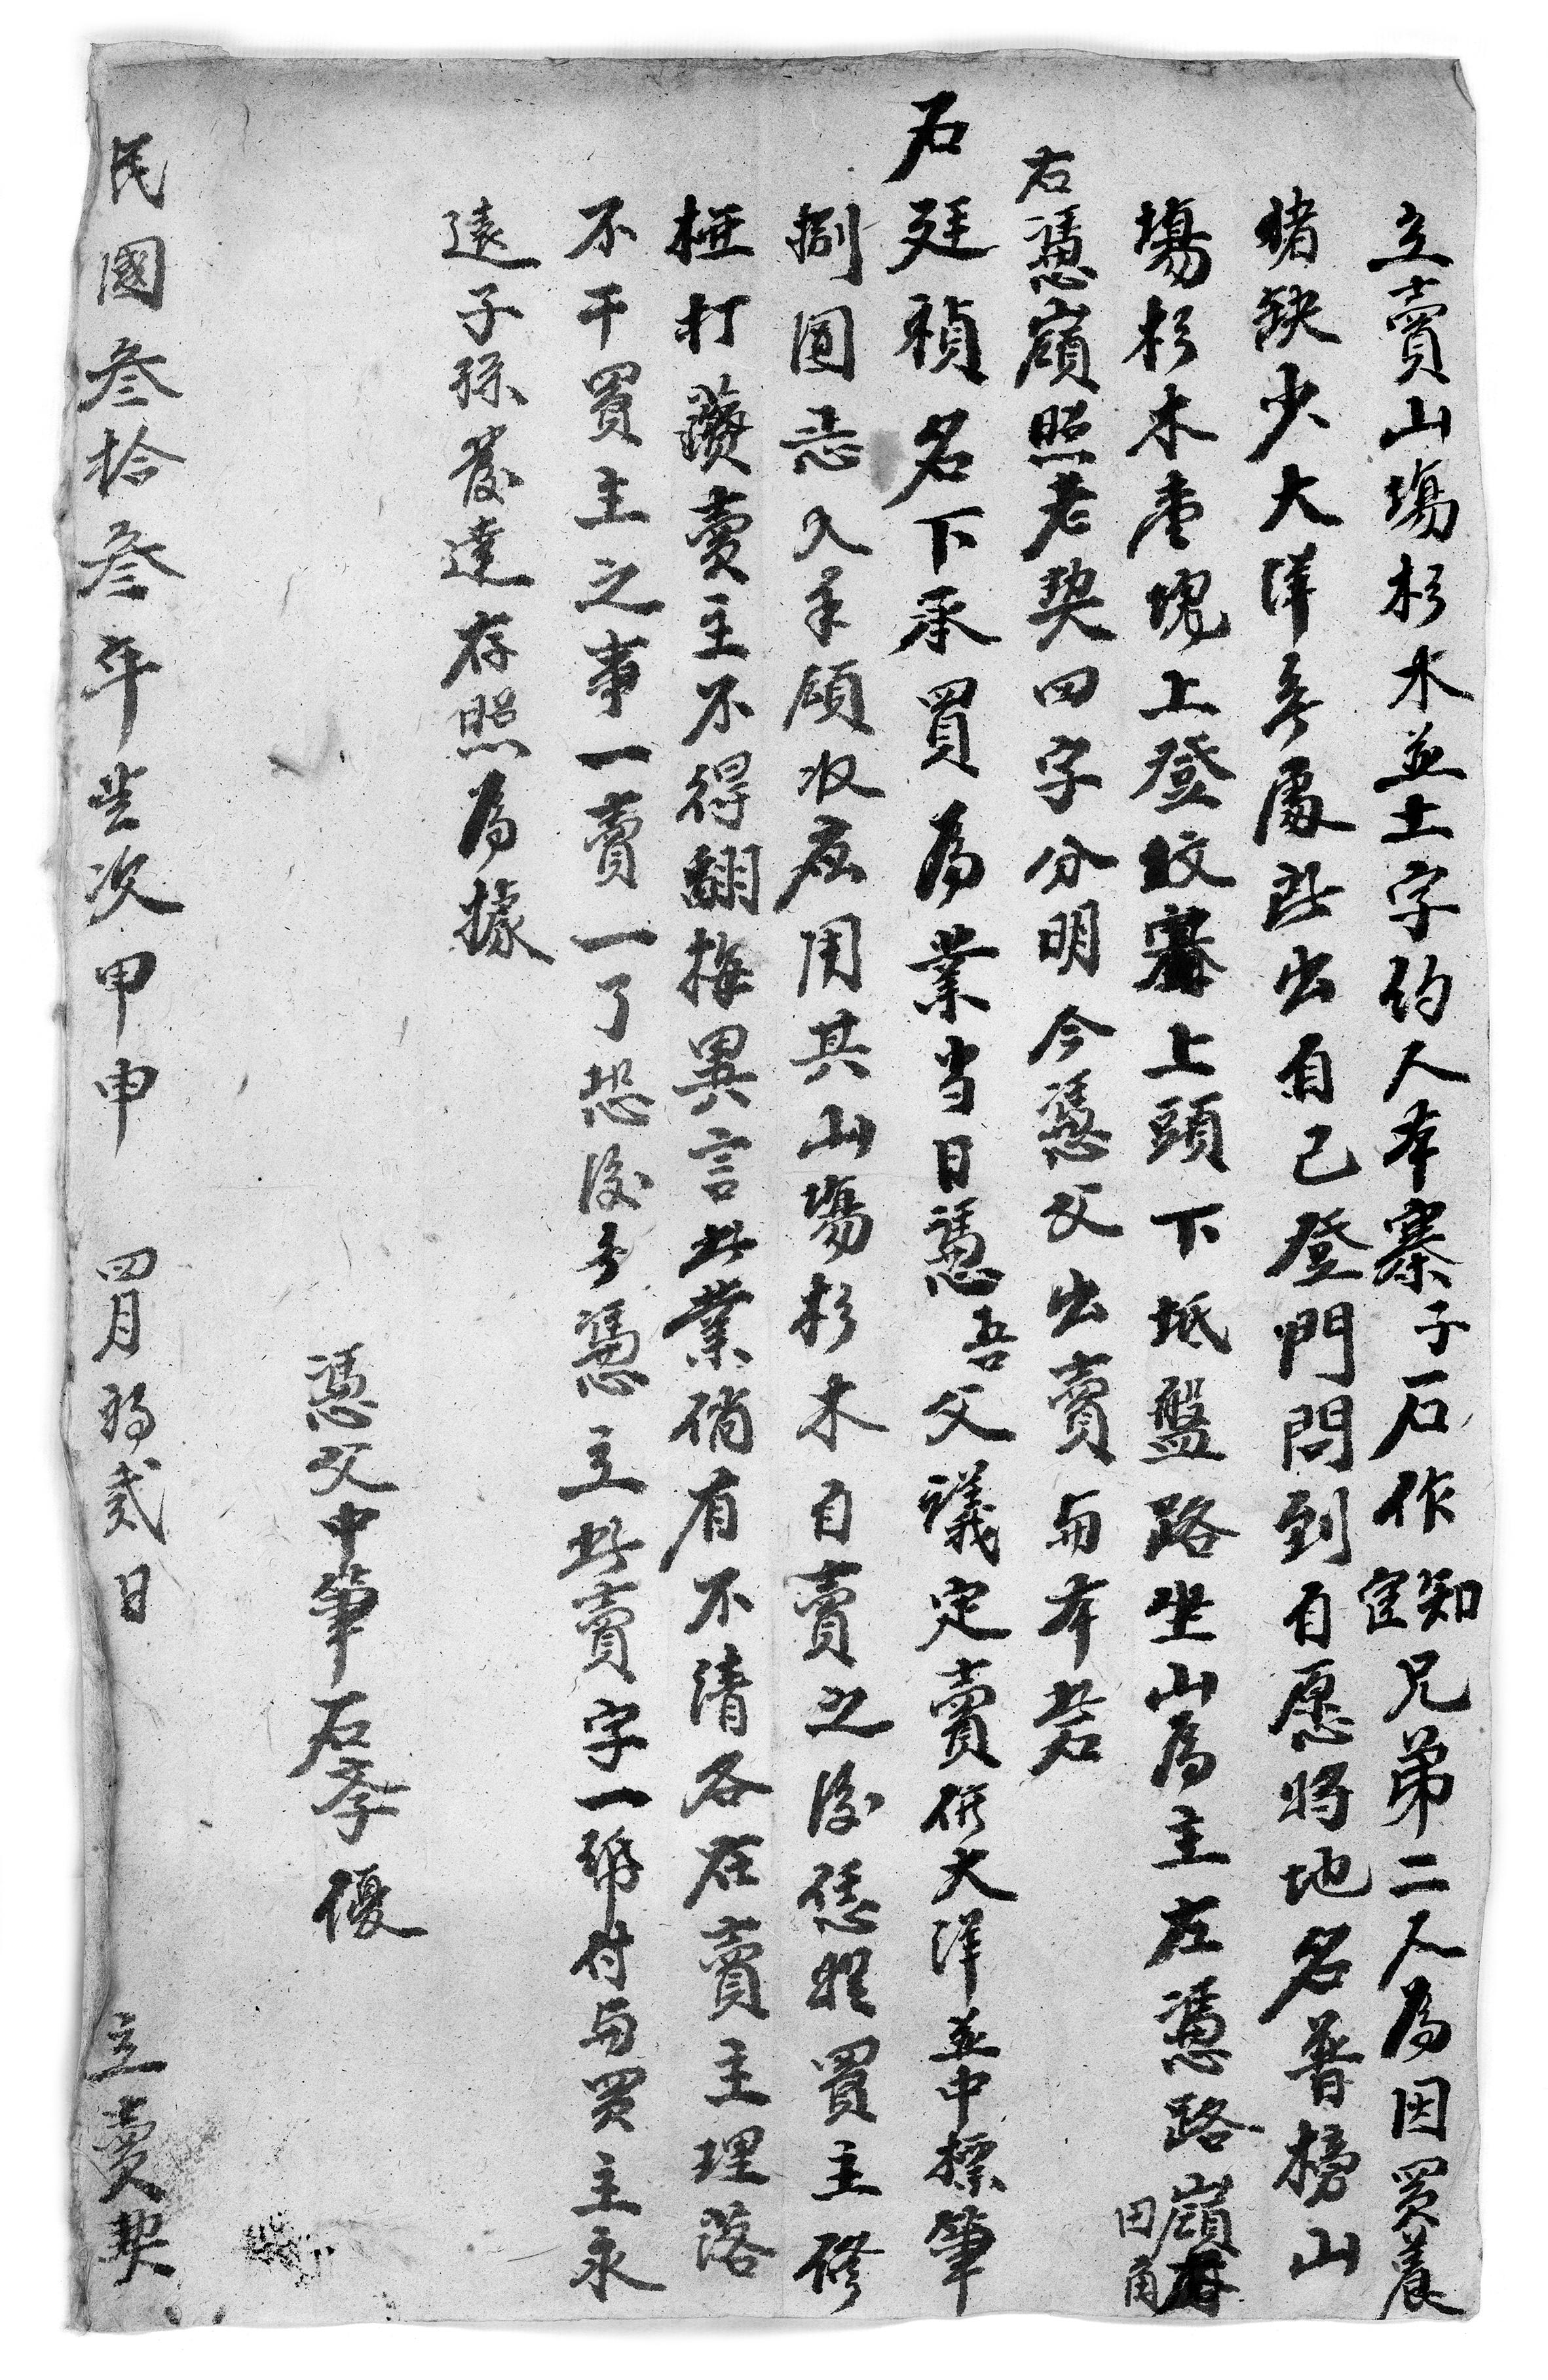 立賣山塲杉木並土字約人本寨子石作知宦兄弟二人為因買養
猪缺少大洋無處出自己登門問到自愿将地名普榜山
塲杉木壹塊上登坟上頭下坻盤路坐山為主左憑路嶺田角
右憑嶺照老契四字分明今憑父出賣与本砦
石廷禎名下承買為業当日憑吾父議定賣價大洋並中標筆
捌圓忝入手領收應用其山塲杉木自賣之後恁憑買主修
椏打蔸賣主不得翻悔異言此業稍有不清各在賣主理落
不干買主之事一賣一了恐後無憑立此賣字一紙付与買主永
遠子孫發達存照為據
憑父中筆石孝優
民國叁拾叁年歲次甲申 四月初弍日 立賣契